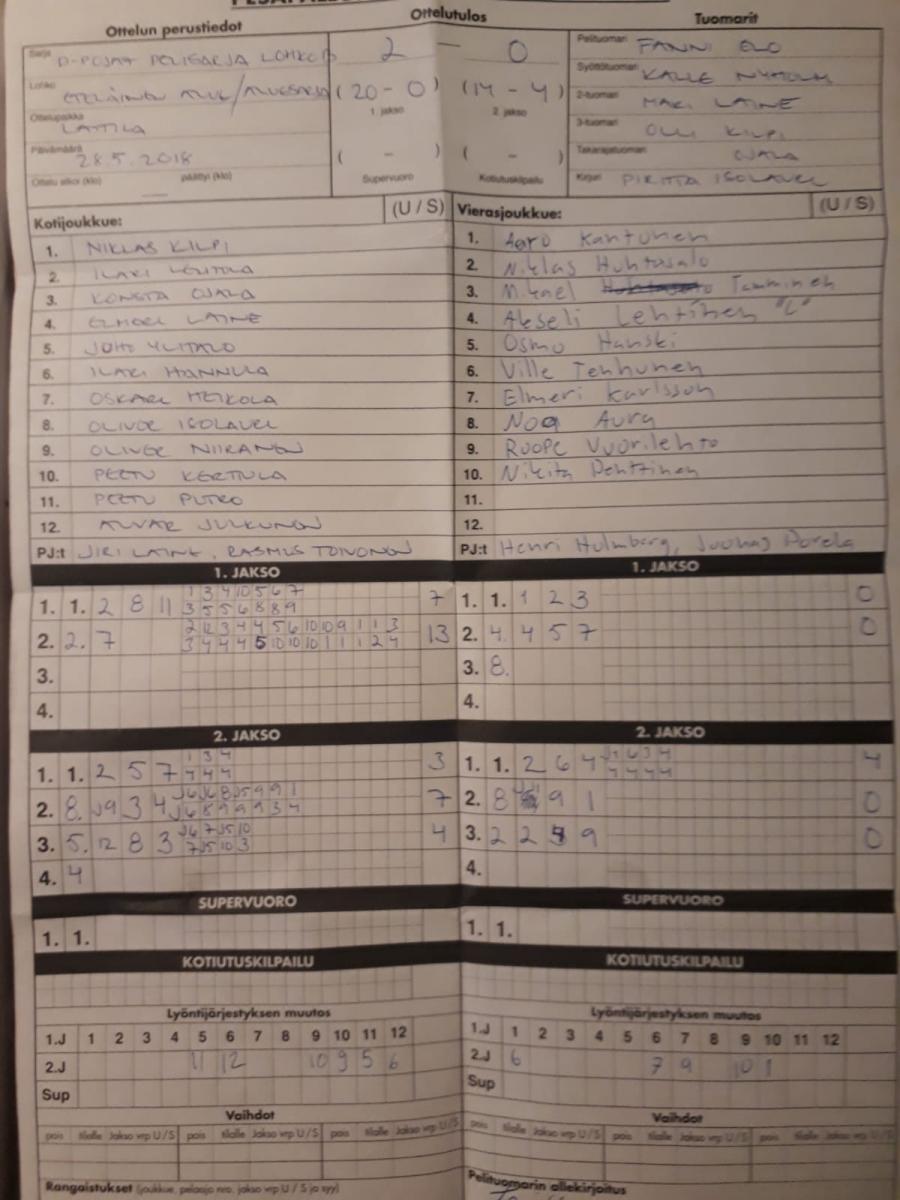 Ottelun perustiedot Ottelutulos Tuomarit
Sarja D-POJAT PELISARJA LOHKO B 2 – 0 Pelituomari FANNI ELO
Lohko ETELÄINEN ALUE/ALUESARJA (20 – 0) (14 – 4) Syöttötuomari KALLE NYHOLM
1. jakso 2. jakso 2-tuomari LAINE
Ottelupaikka LAITILA 3-tuomari OLLI KILPI
Päivämäärä 28.5.2018 ( – ) ( – ) Takarajatuomari OJALA
Ottelu alkoi (klo) päättyi (klo) Supervuoro Kotiutuskilpailu Kirjuri PIRITTA ISOLAURI
Kotijoukkue: (U / S) Vierasjoukkue: (U / S)
1. NIKLAS KILPI 1. Aaro Kantunen
2. ILARI 2. Niklas Huhtasalo
3. KONSTA OJALA 3. Mikael Tamminen
4. ELMERI LAINE 4. Akseli Lehtinen "L"
5. JUHO YLITALO 5. Osmo Hanski
6. ILARI HANNULA 6. Ville Tenhunen
7. OSKARI HEIKOLA 7. Elmeri Karlsson
8. OLIVER ISOLAURI 8. Noa Aura
9. OLIVER NIIRANEN 9. Roope Vuorilehto
10. PEETU KERTTULA 10. Nikita Penttinen
11. PEETU PUTRO 11.
12. ALVAR JULKUNEN 12.
PJ:t JIRI LAINE, RASMUS TOIVONEN PJ:t Henri Holmberg, Joonas Porela
1. JAKSO 1. JAKSO
1 3 4 10 5 6 7
1. 1. 2 8 11 3 5 5 6 8 8 9 7 1. 1. 1 2 3 0
2 12 3 4 4 5 6 10 10 9 1 1 3
2. 2. 7 3 4 4 4 5 10 10 10 1 1 1 2 4 13 2. 4. 4 5 7 0
3. 3. 8.
4. 4.
2. JAKSO 2. JAKSO
1 3 4
1. 1. 2 5 7 4 4 4 3 1. 1. 2 6 4 4 4 4 4 4
2. 8. J9 3 4 7 2. 8 9 1 0
J6 7 J5 10
3. 5. 12 8 3 7 J5 10 3 4 3. 2 2 9 0
4. 4 4.
SUPERVUORO SUPERVUORO
1. 1. 1. 1.
KOTIUTUSKILPAILU KOTIUTUSKILPAILU
Lyöntijärjestyksen muutos Lyöntijärjestyksen muutos
1.J 1 2 3 4 5 6 7 8 9 10 11 12 1.J 1 2 3 4 5 6 7 8 9 10 11 12
2.J 11 12 10 9 5 6 2.J 6 7 9 10 1
Sup Sup
Vaihdot Vaihdot
pois tilalle Jakso vrp U / S pois tilalle Jakso vrp U / S pois tilalle Jakso vrp U / S pois tilalle Jakso vrp U / S pois tilalle Jakso vrp U / S pois tilalle Jakso vrp U / S
Rangaistukset (joukkue, pelaaja nro, jakso vrp U / S ja syy) Pelituomarin allekirjoitus